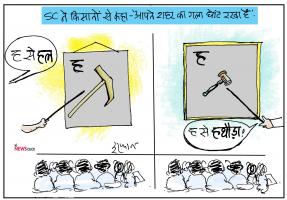 SC ने किसानों से कहा-"आपने शहर का गला घोंट रखा है".
ह से हल
ह
NEWSclick
ह
ह से हथौड़ा!